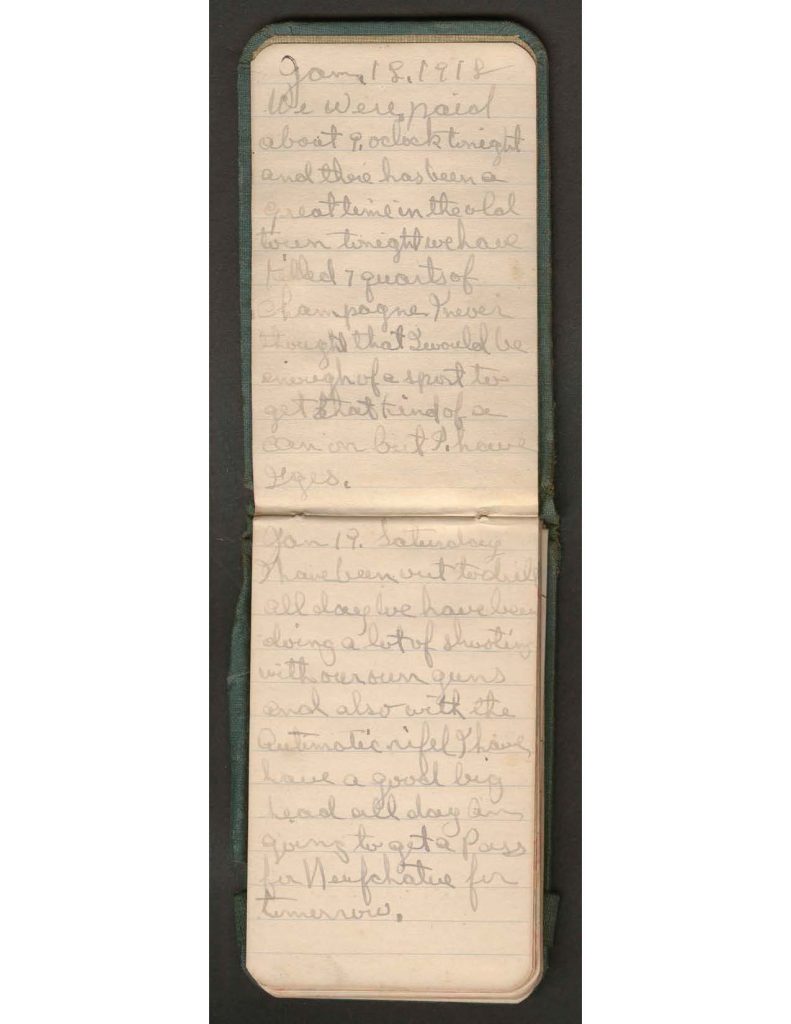 Jan, 18, 1918
We Were, paid
about 9, oclock tonight
and there has been a
great time in the old
town tonight we have
killed 7 quarts of
Champagne, I never
thought that I would be
enough of a sport to
get that kind of a
can on but I, have
Yges.
Jan 19. Saturday
I have been out to drill
all day We have been
doing a lot of shooting
with our own guns
and also with the
Automatic rifel I have
have a good big
head all day Am
going to get a Pass
for Neufchatue for
tomorrow.